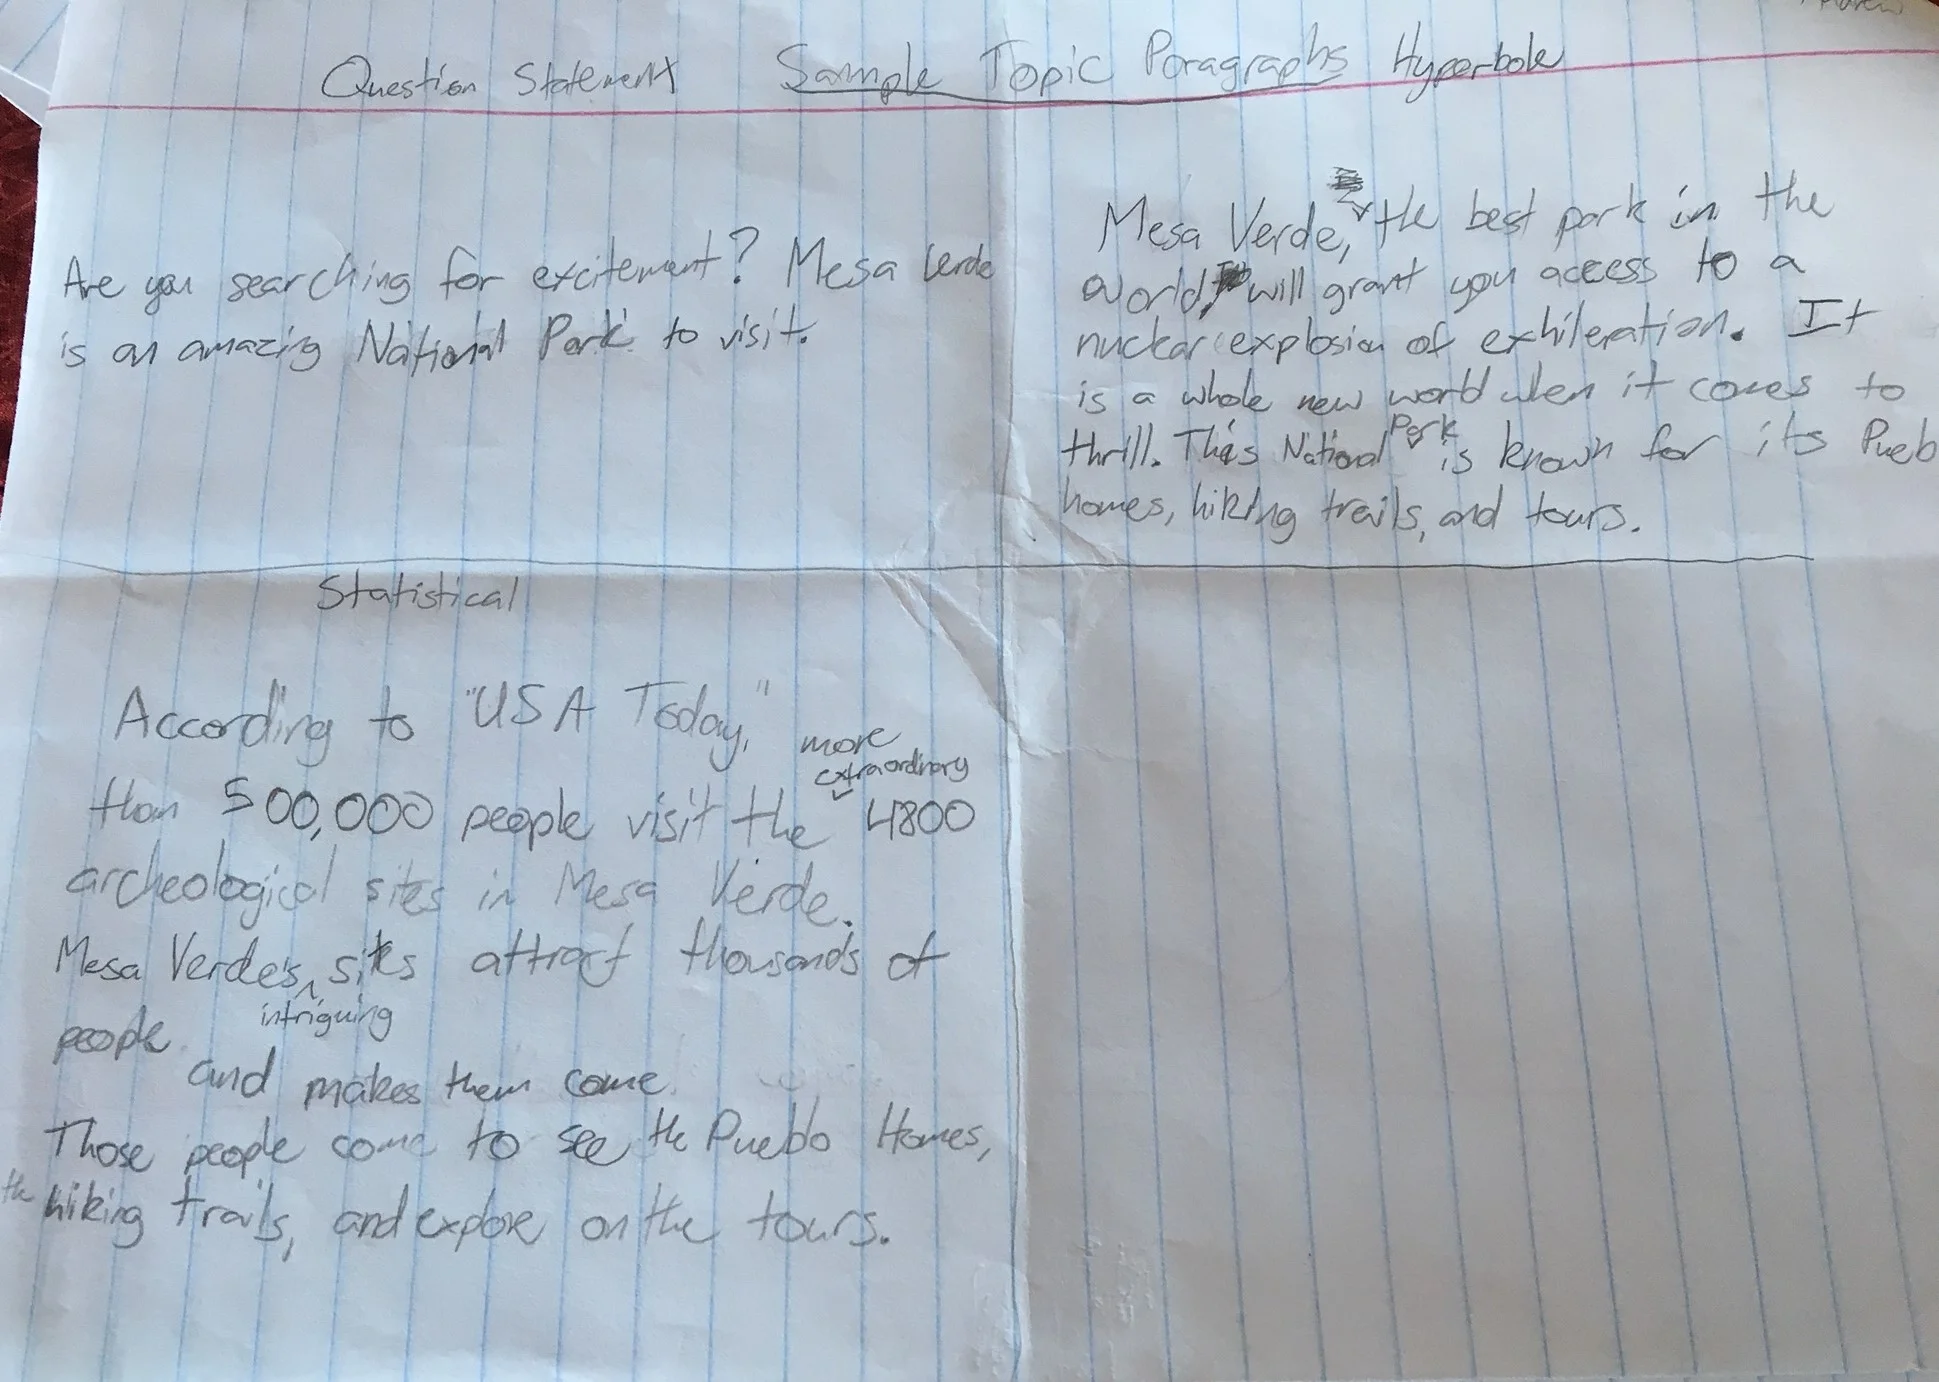 Question Statement Sample Topic Paragraphs Hyperbole
Are you searching for excitement? Mesa Verde
is an amazing National Park to visit.
Mesa Verde, the best park in the
world, will grant you access to a
nuclear explosion of exhileration. It
is a whole new world when it comes to
thrill. This National Park is known for its Pueb
homes, hiking trails, and tours.
Statistical
According to "USA Today," more
than 500,000 people visit the extraordinary 4800
archeological sites in Mesa Verde.
Mesa Verde's intriguing sites attract thousands of
people
and makes them come.
Those people come to see the Pueblo Homes,
the hiking trails, and explore on the tours.